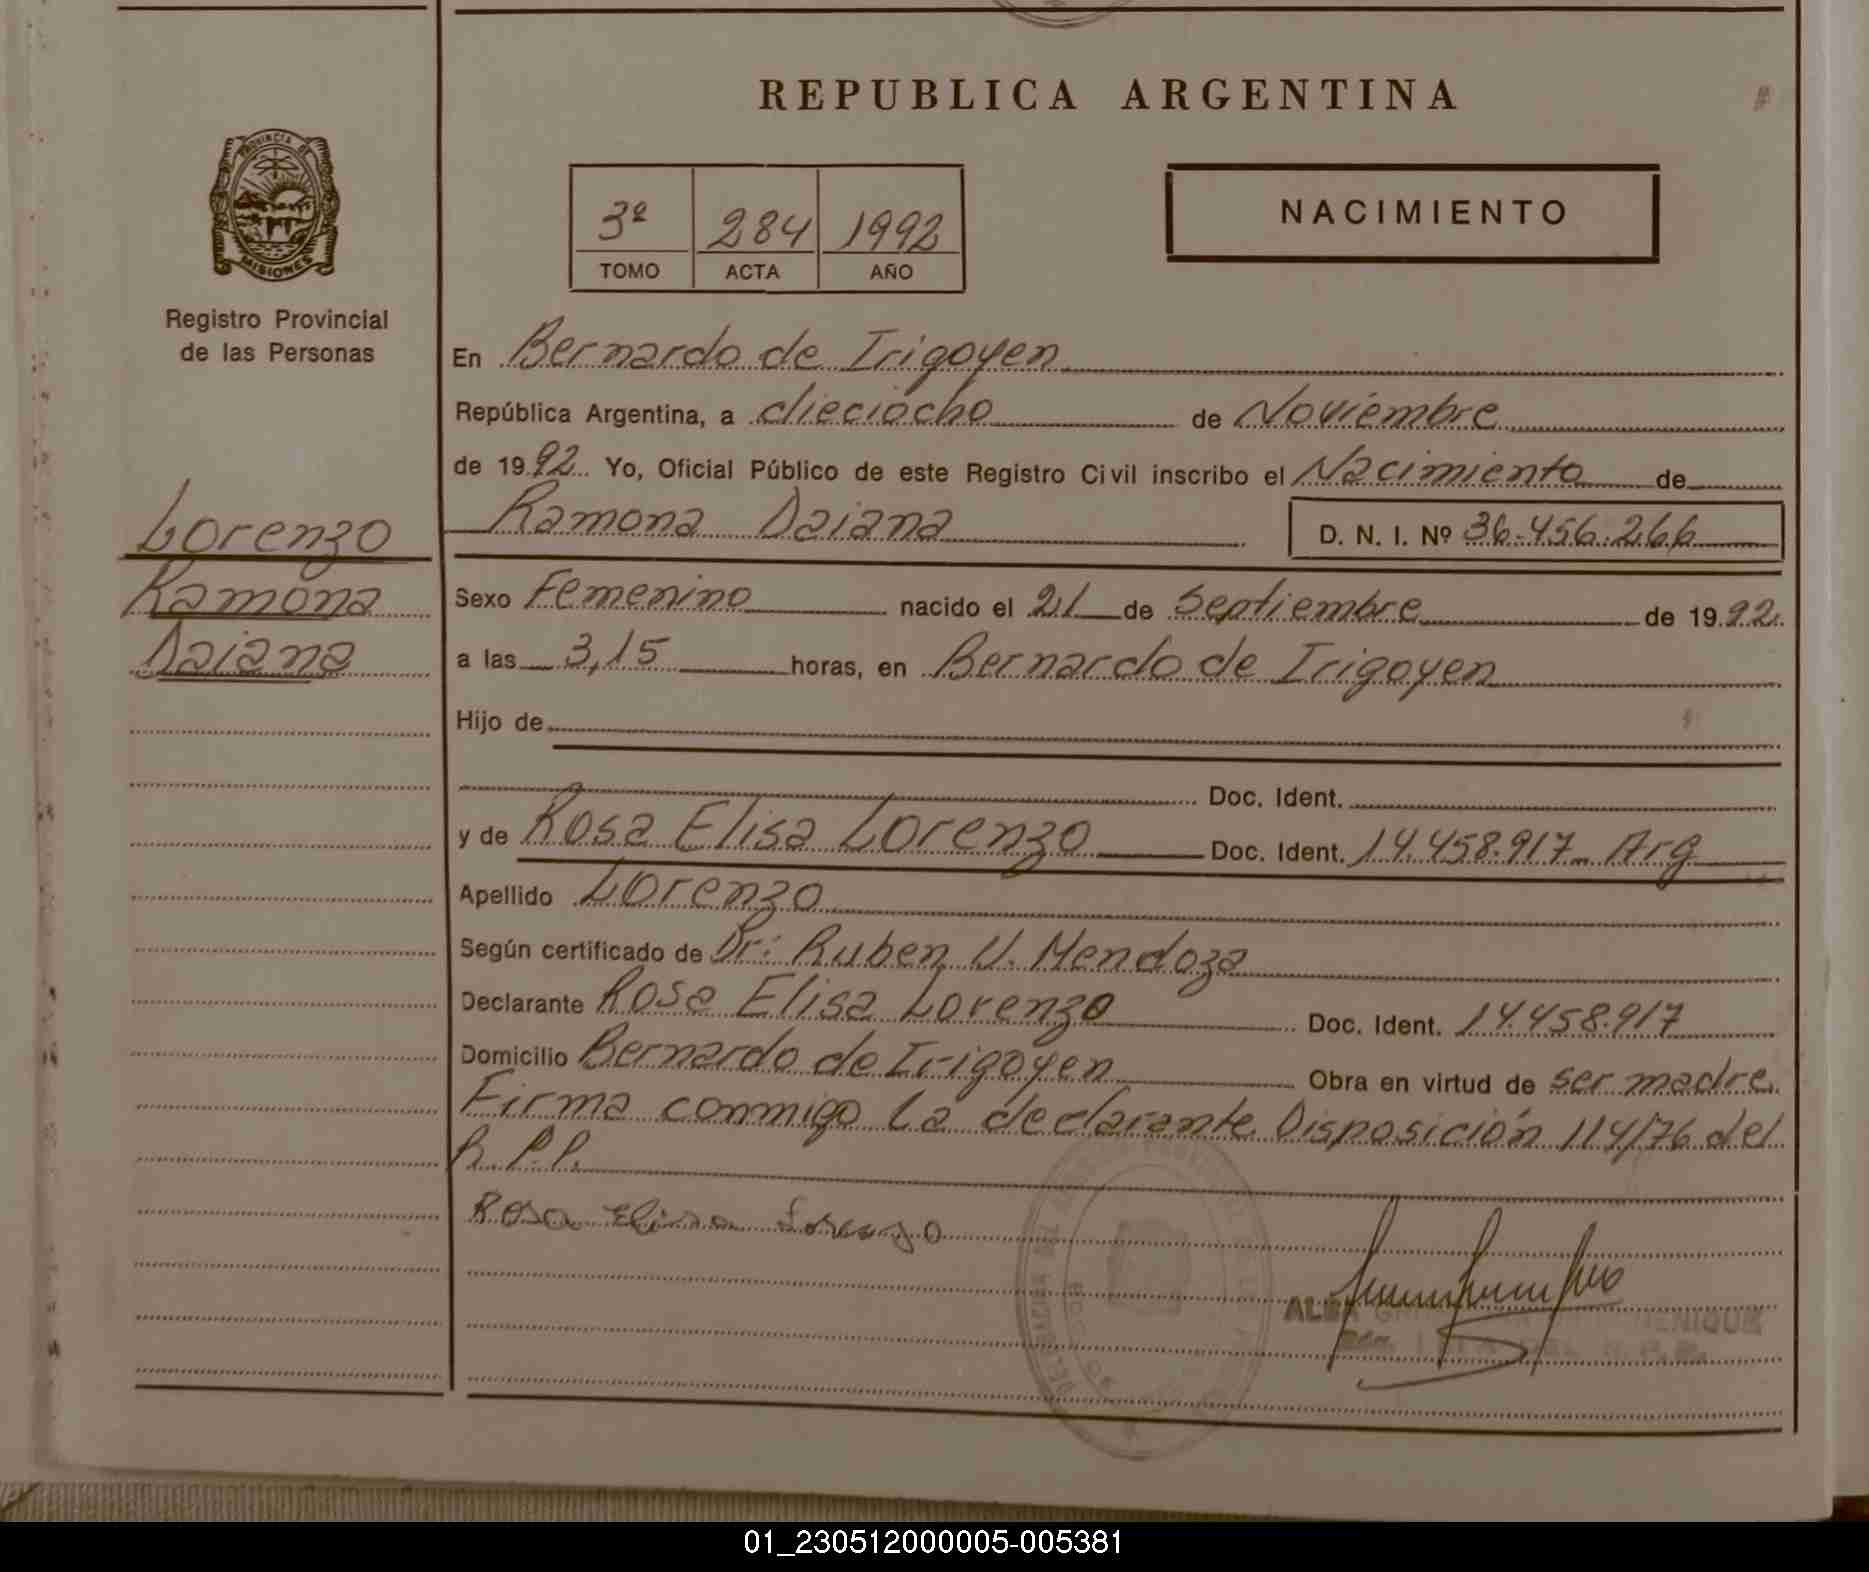 REPUBLICA ARGENTINA
PROVINCIA DE
MISIONES
Registro Provincial
de las Personas
3º 284 1992
TOMO ACTA AÑO
NACIMIENTO
Lorenzo
Ramona
Daiana
En Bernardo de Irigoyen
República Argentina, a dieciocho de Noviembre
de 1992 Yo, Oficial Público de este Registro Civil inscribo el Nacimiento de
Ramona Daiana D. N. I. Nº 36.456.266
Sexo Femenino nacido el 21 de Septiembre de 1992
a las 3,15 horas, en Bernardo de Irigoyen
Hijo de
Doc. Ident.
y de Rosa Elisa Lorenzo Doc. Ident. 14.458.917 Arg
Apellido Lorenzo
Según certificado de Dr: Ruben U. Mendoza
Declarante Rosa Elisa Lorenzo Doc. Ident. 14.458.917
Domicilio Bernardo de Irigoyen Obra en virtud de ser madre
Firma conmigo la declarante Disposición 114/76 del
R. P.P.
Rosa Elisa Lorenzo
01_230512000005-005381